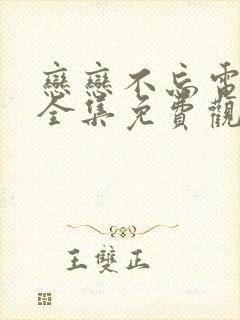 戀戀不忘電
全集免費觀
王雙正